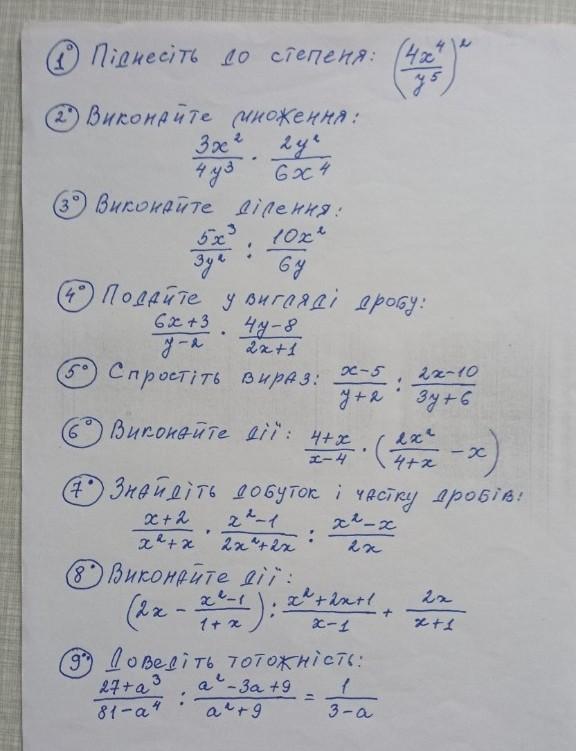 1° Піднесіть до степеня: (4x⁴/y⁵)²
2° Виконайте множення:
3x²/4y³ · 2y²/6x⁴
3° Виконайте ділення:
5x³/3y² : 10x²/6y
4° Подайте у вигляді дробу:
(6x+3)/(y-2) · (4y-8)/(2x+1)
5° Спростіть вираз: (x-5)/(y+2) : (2x-10)/(3y+6)
6° Виконайте дії: (4+x)/(x-4) · (2x²/(4+x) - x)
7• Знайдіть добуток і частку дробів:
(x+2)/(x²+x) · (x²-1)/(2x²+2x) : (x²-x)/2x
8• Виконайте дії:
(2x - (x²-1)/(1+x)) : (x²+2x+1)/(x-1) + 2x/(x+1)
9•• Доведіть тотожність:
(27+a³)/(81-a⁴) : (a²-3a+9)/(a²+9) = 1/(3-a)